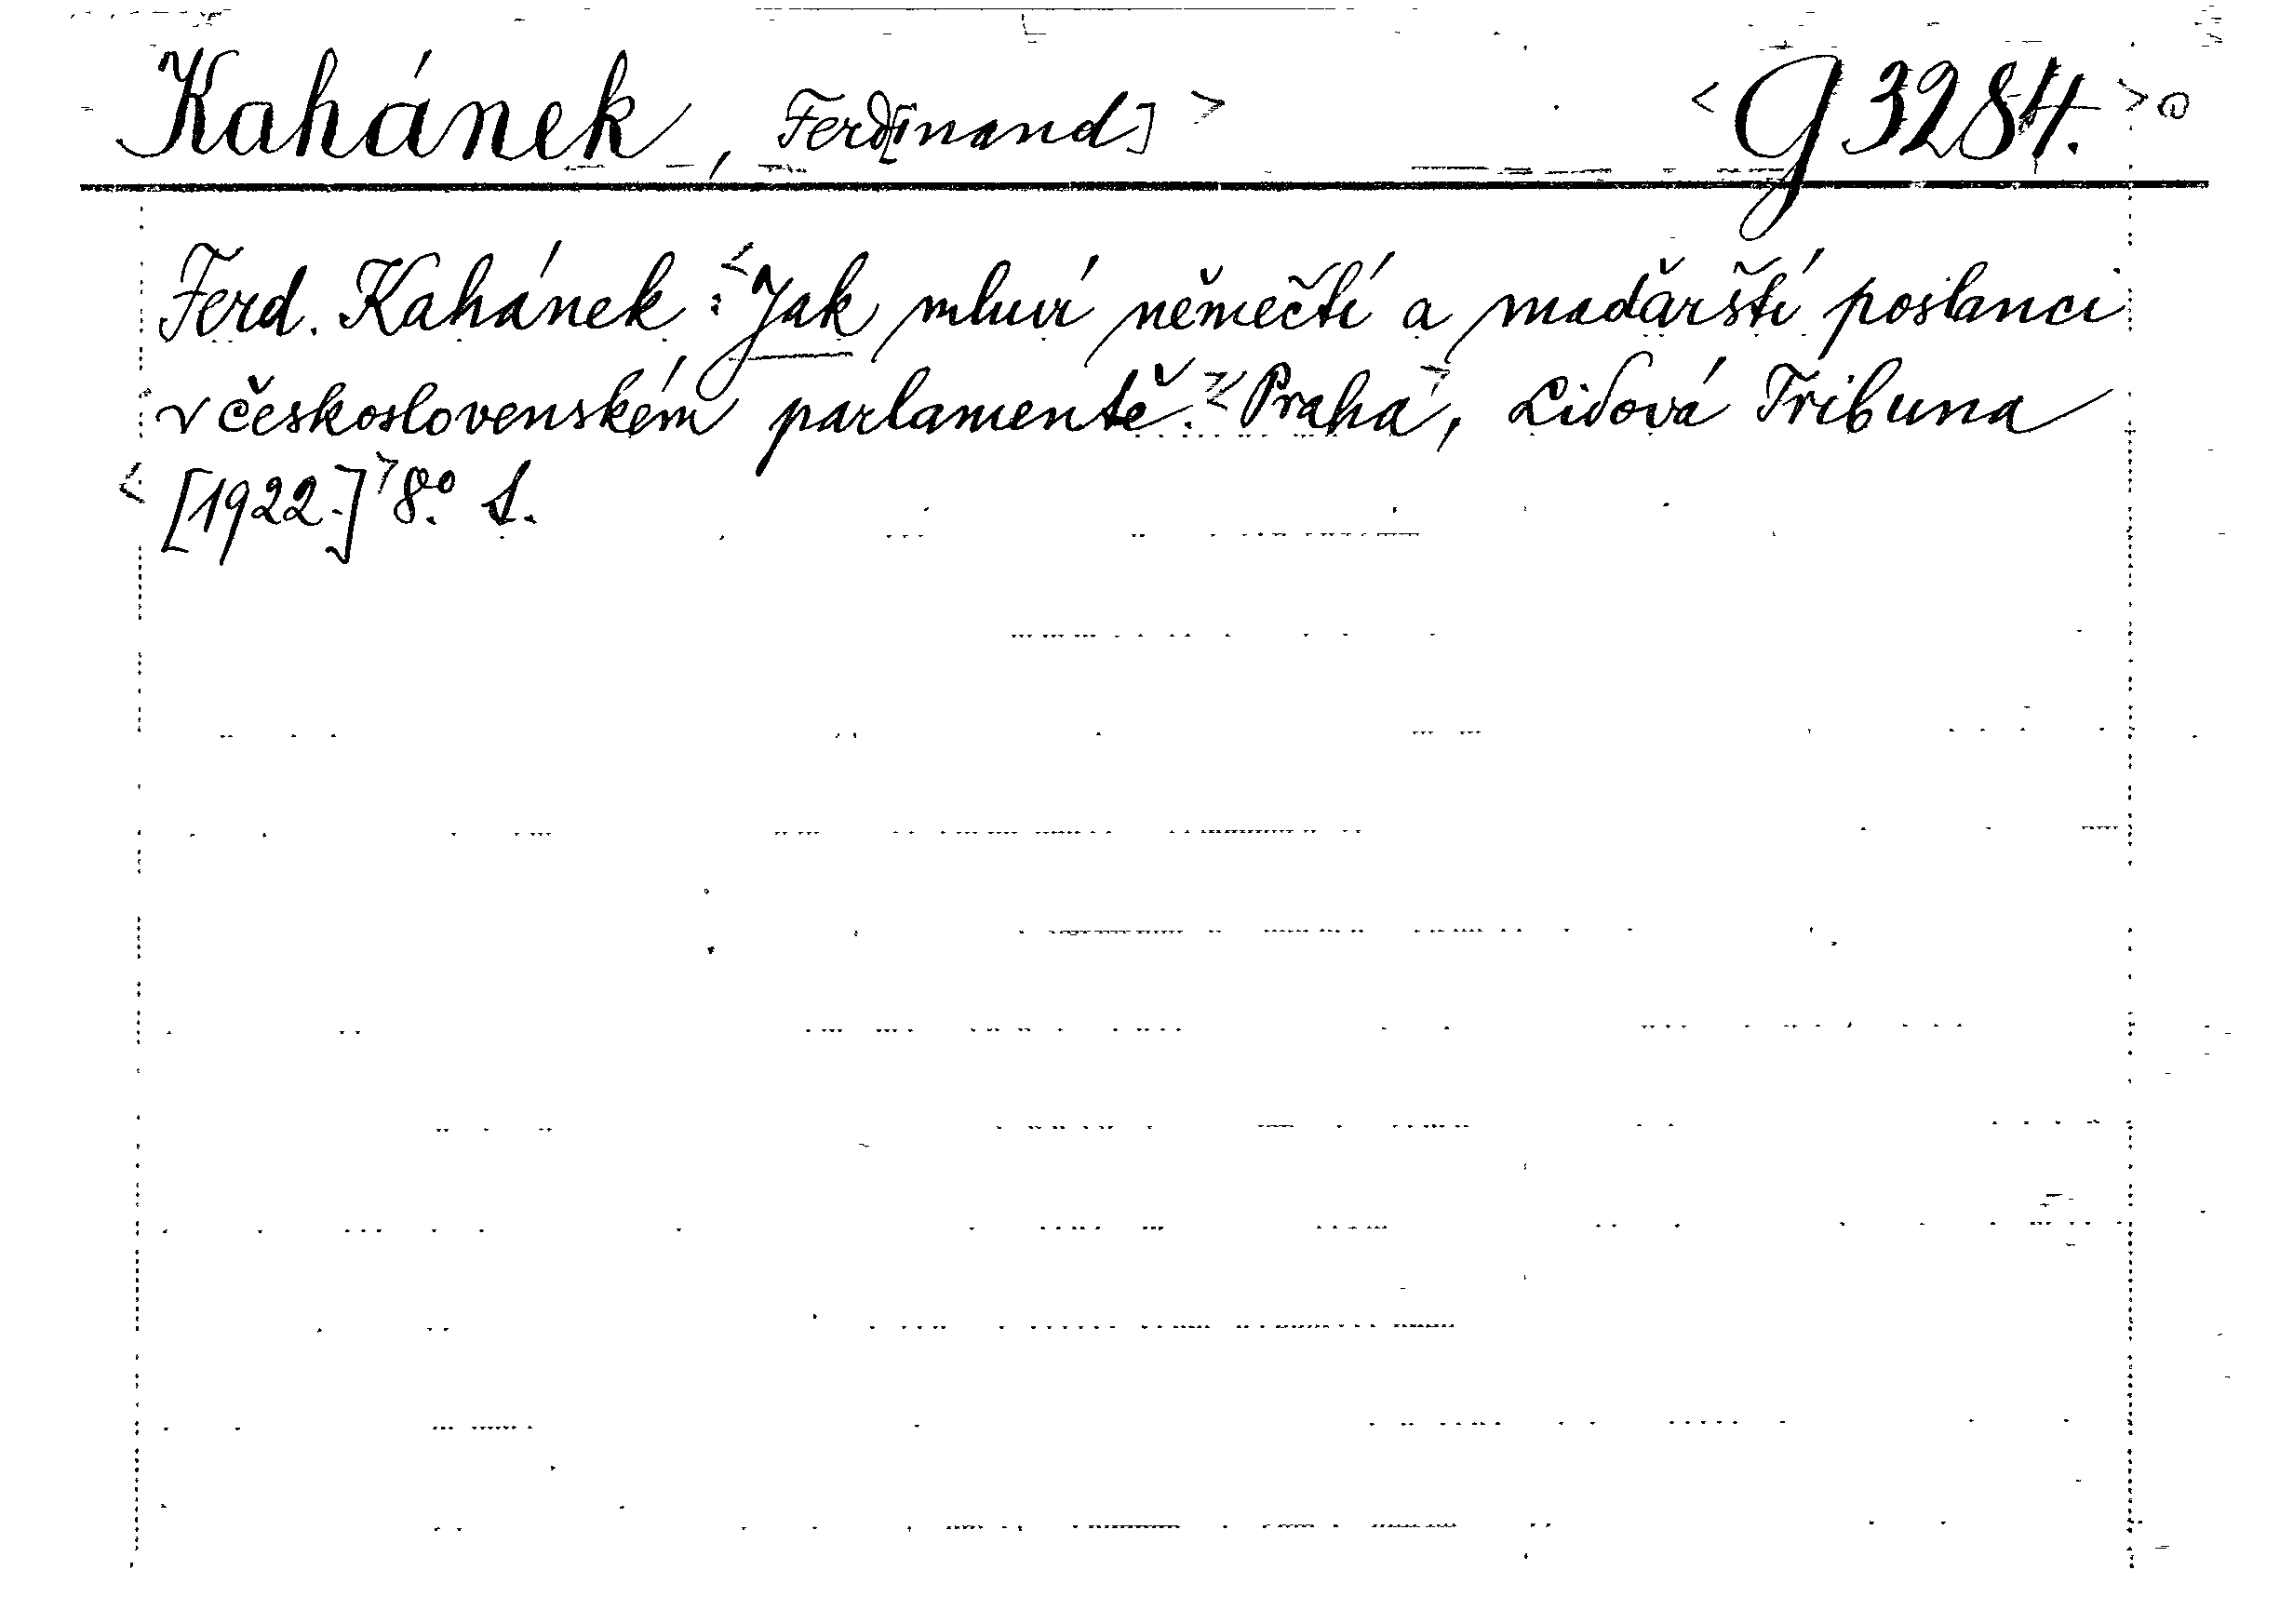 Kahánek, Ferd[inand]> <G 3284.>
Ferd. Kahánek: <Jak mluví němečtí a maďarští poslanci
v československém parlamentě.> <Praha>, Lidová Tribuna
<[1922.]> 8.° S.